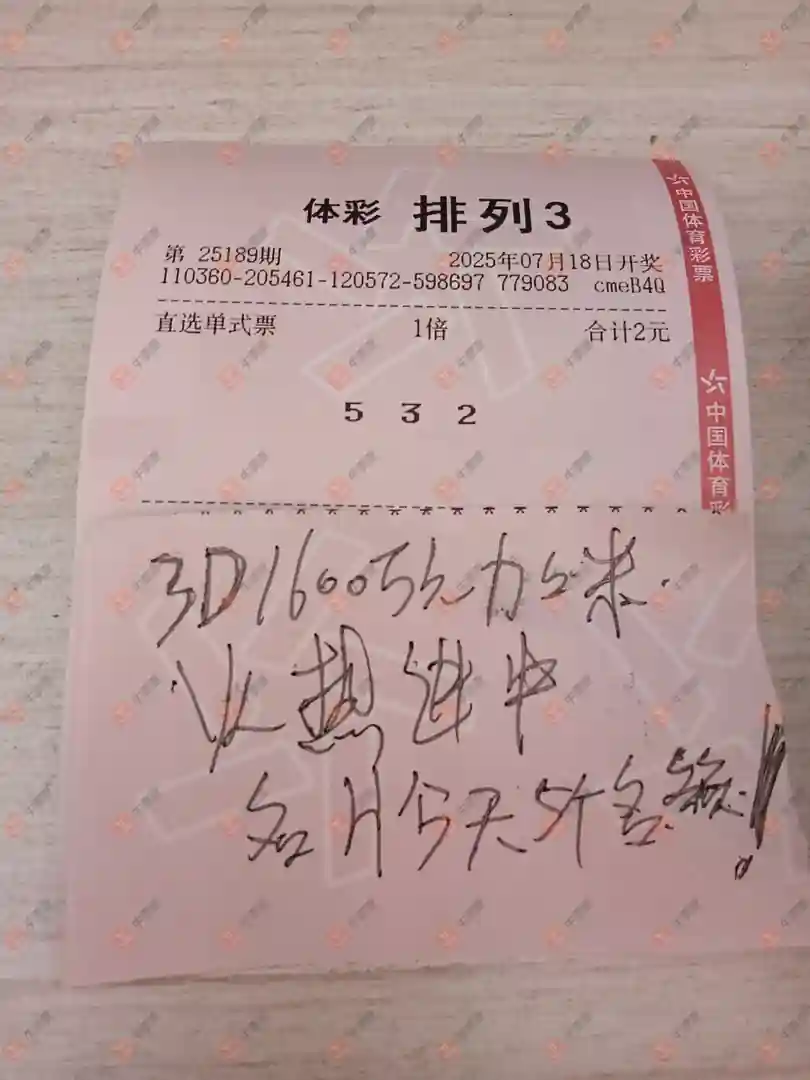 体彩 排列3
第 25189期 2025年07月18日开奖
110360-205461-120572-598697 779083 cmeB4Q
直选单式票 1倍 合计2元
5 3 2
3D1600万元力云来
火热进中
名片今天5个名额!
中国体育彩票
中国体育彩